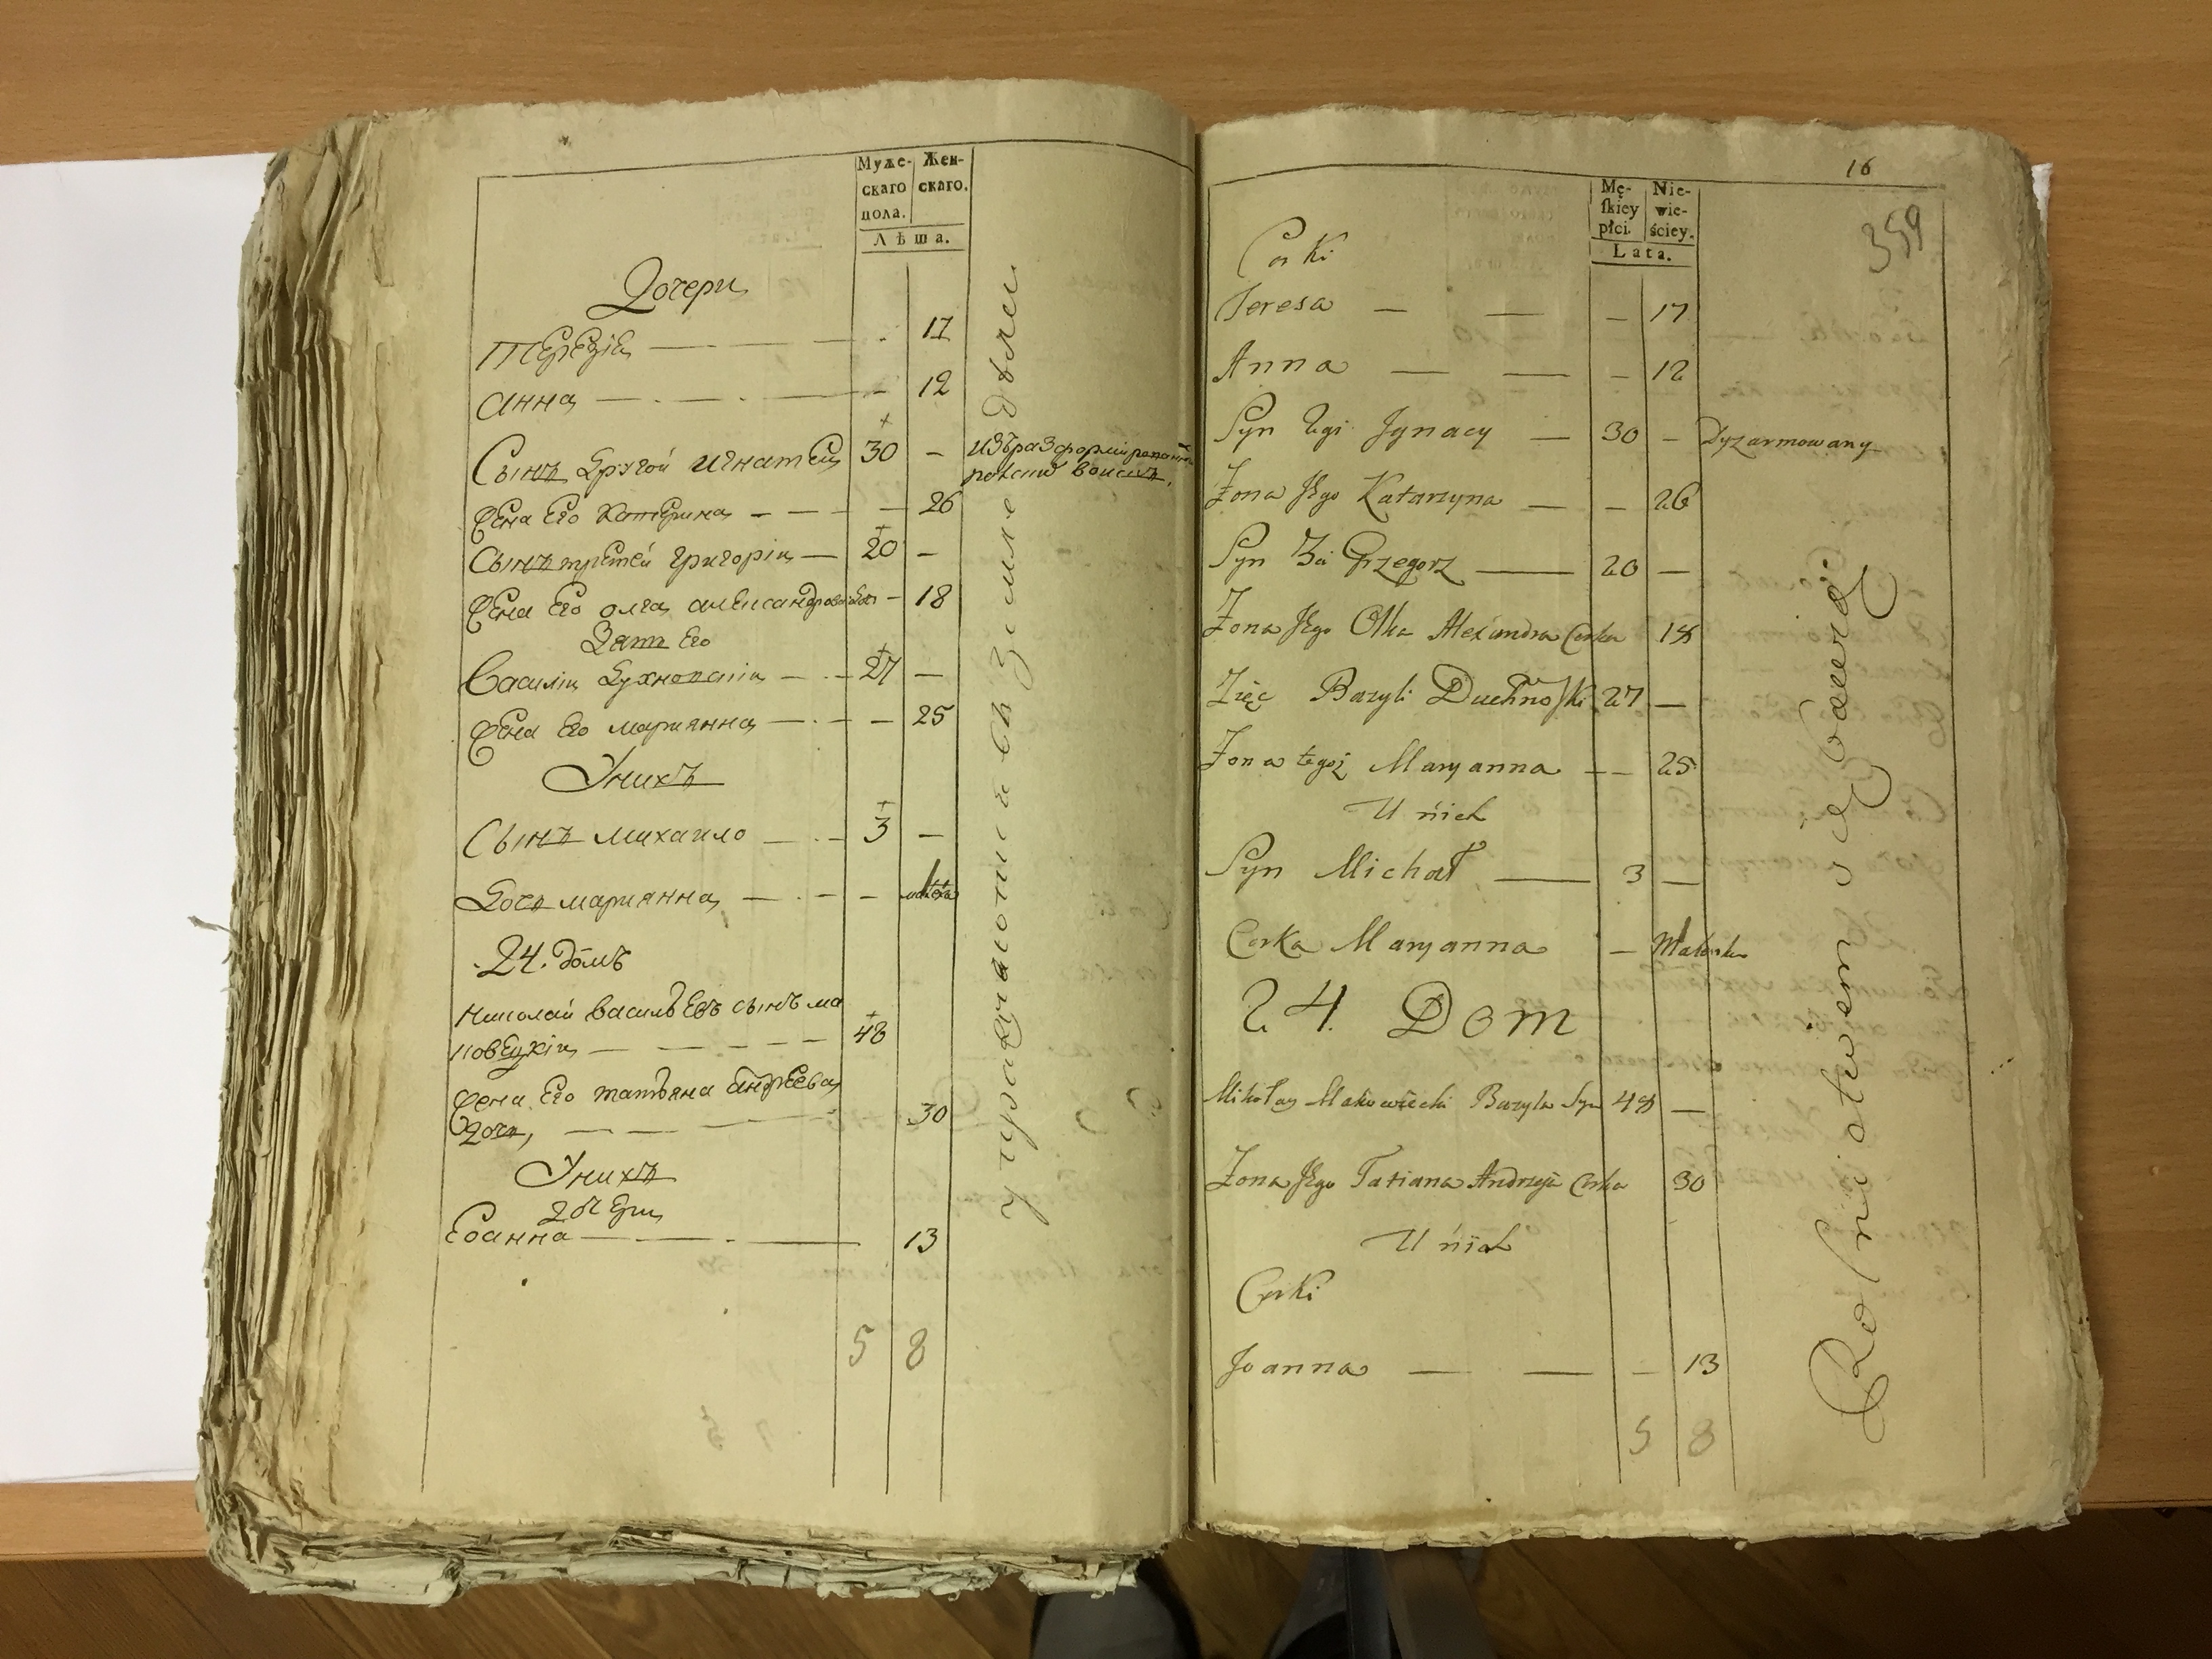 Муже-
скаго
пола.
Жен-
скаго.
Лѣта.
Дочери
Терезіа — — — 17
Анна — — — 12
Сынъ другой Игнатей 30 —
Жена Его Катерина — — — 26
Сынъ третей Григорій — 20 —
Жена Его Олга Александрова — 18
Зять Его
Василій Духновскій — — 27 —
Жена Его Марианна — — — 25
У нихъ
Сынъ Михайло — — 3 —
Дочь Марианна — — —
24. домъ
Николай Васильевъ сынъ Ма
ковецкій — — — 48
Жена Его Татьяна Андреева
Дочь, — — — 30
У нихъ
Дочери
Еоанна — — — 13
5 8
упражняются въ Земледѣли
16
359
Mę-
skiey
płci.
Nie-
wie-
ściey.
Lata.
Corki
Teresa — — — 17
Anna — — — 12
Syn 2gi Ignacy — 30 — Dyzarmowany
Żona Jego Katarzyna — — 26
Syn 3ci Grzegorz — 20 —
Żona Jego Olha Alexandra Corka 18
Zięć Bazyli Duchnoski 27 —
Żona tegoż Maryanna — — 25
U nich
Syn Michał — 3 —
Corka Maryanna —
24. Dom
Mikołay Makowiecki Bazyla Syn 48 —
Żona Jego Tatiana Andrzeja Corka 30
U nich
Corki
Joanna — — — 13
5 8
Rolnictwem się bawią